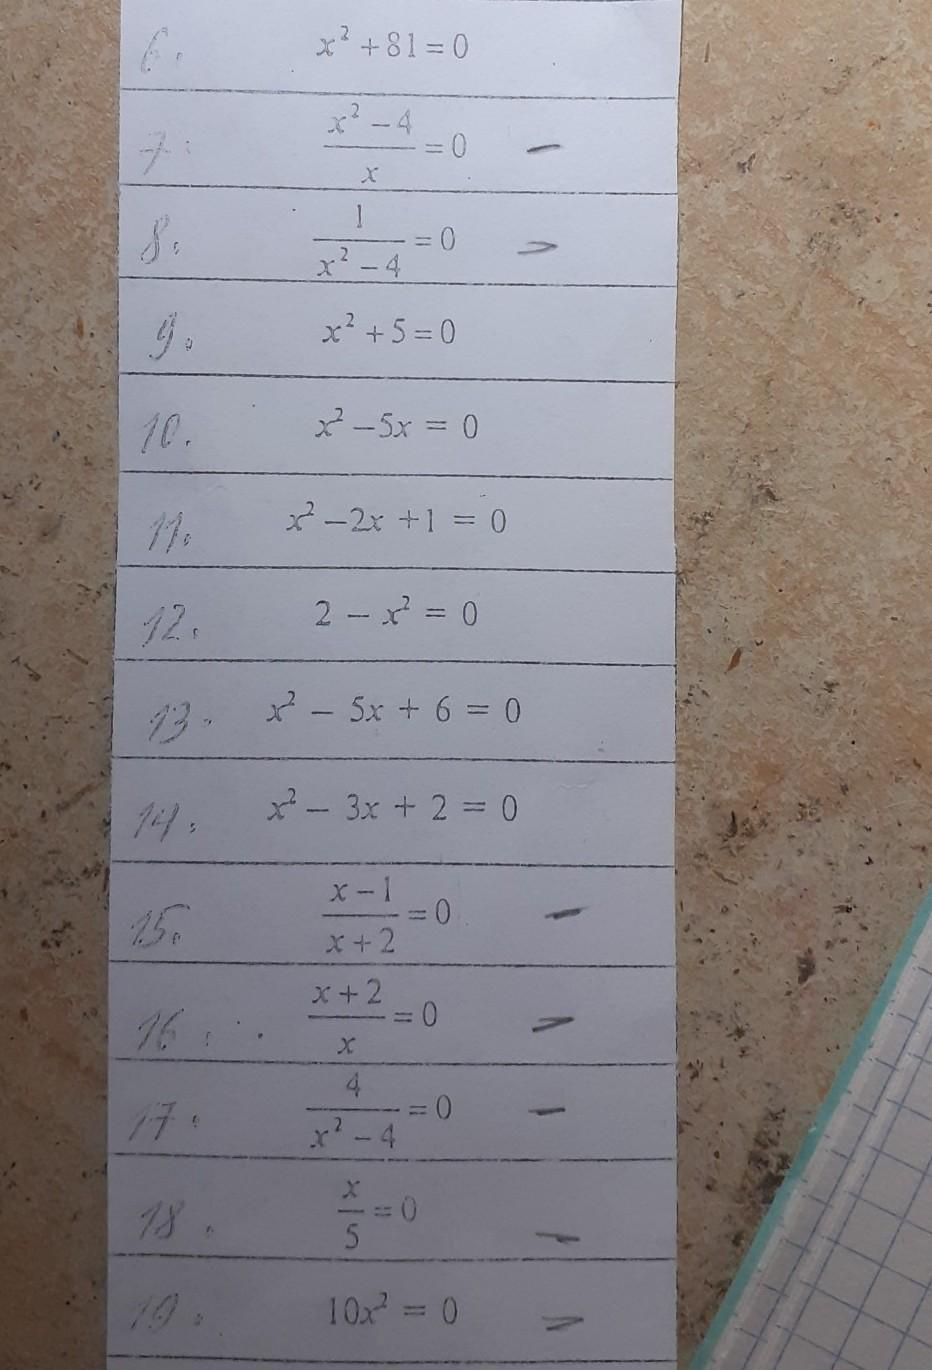 6. x² + 81 = 0
7. (x² − 4)/x = 0 −
8. 1/(x² − 4) = 0 −
9. x² + 5 = 0
10. x² − 5x = 0
11. x² − 2x + 1 = 0
12. 2 − x² = 0
13. x² − 5x + 6 = 0
14. x² − 3x + 2 = 0
15. (x − 1)/(x + 2) = 0 −
16. (x + 2)/x = 0 −
17. 4/(x² − 4) = 0 −
18. x/5 = 0 −
19. 10x² = 0 −